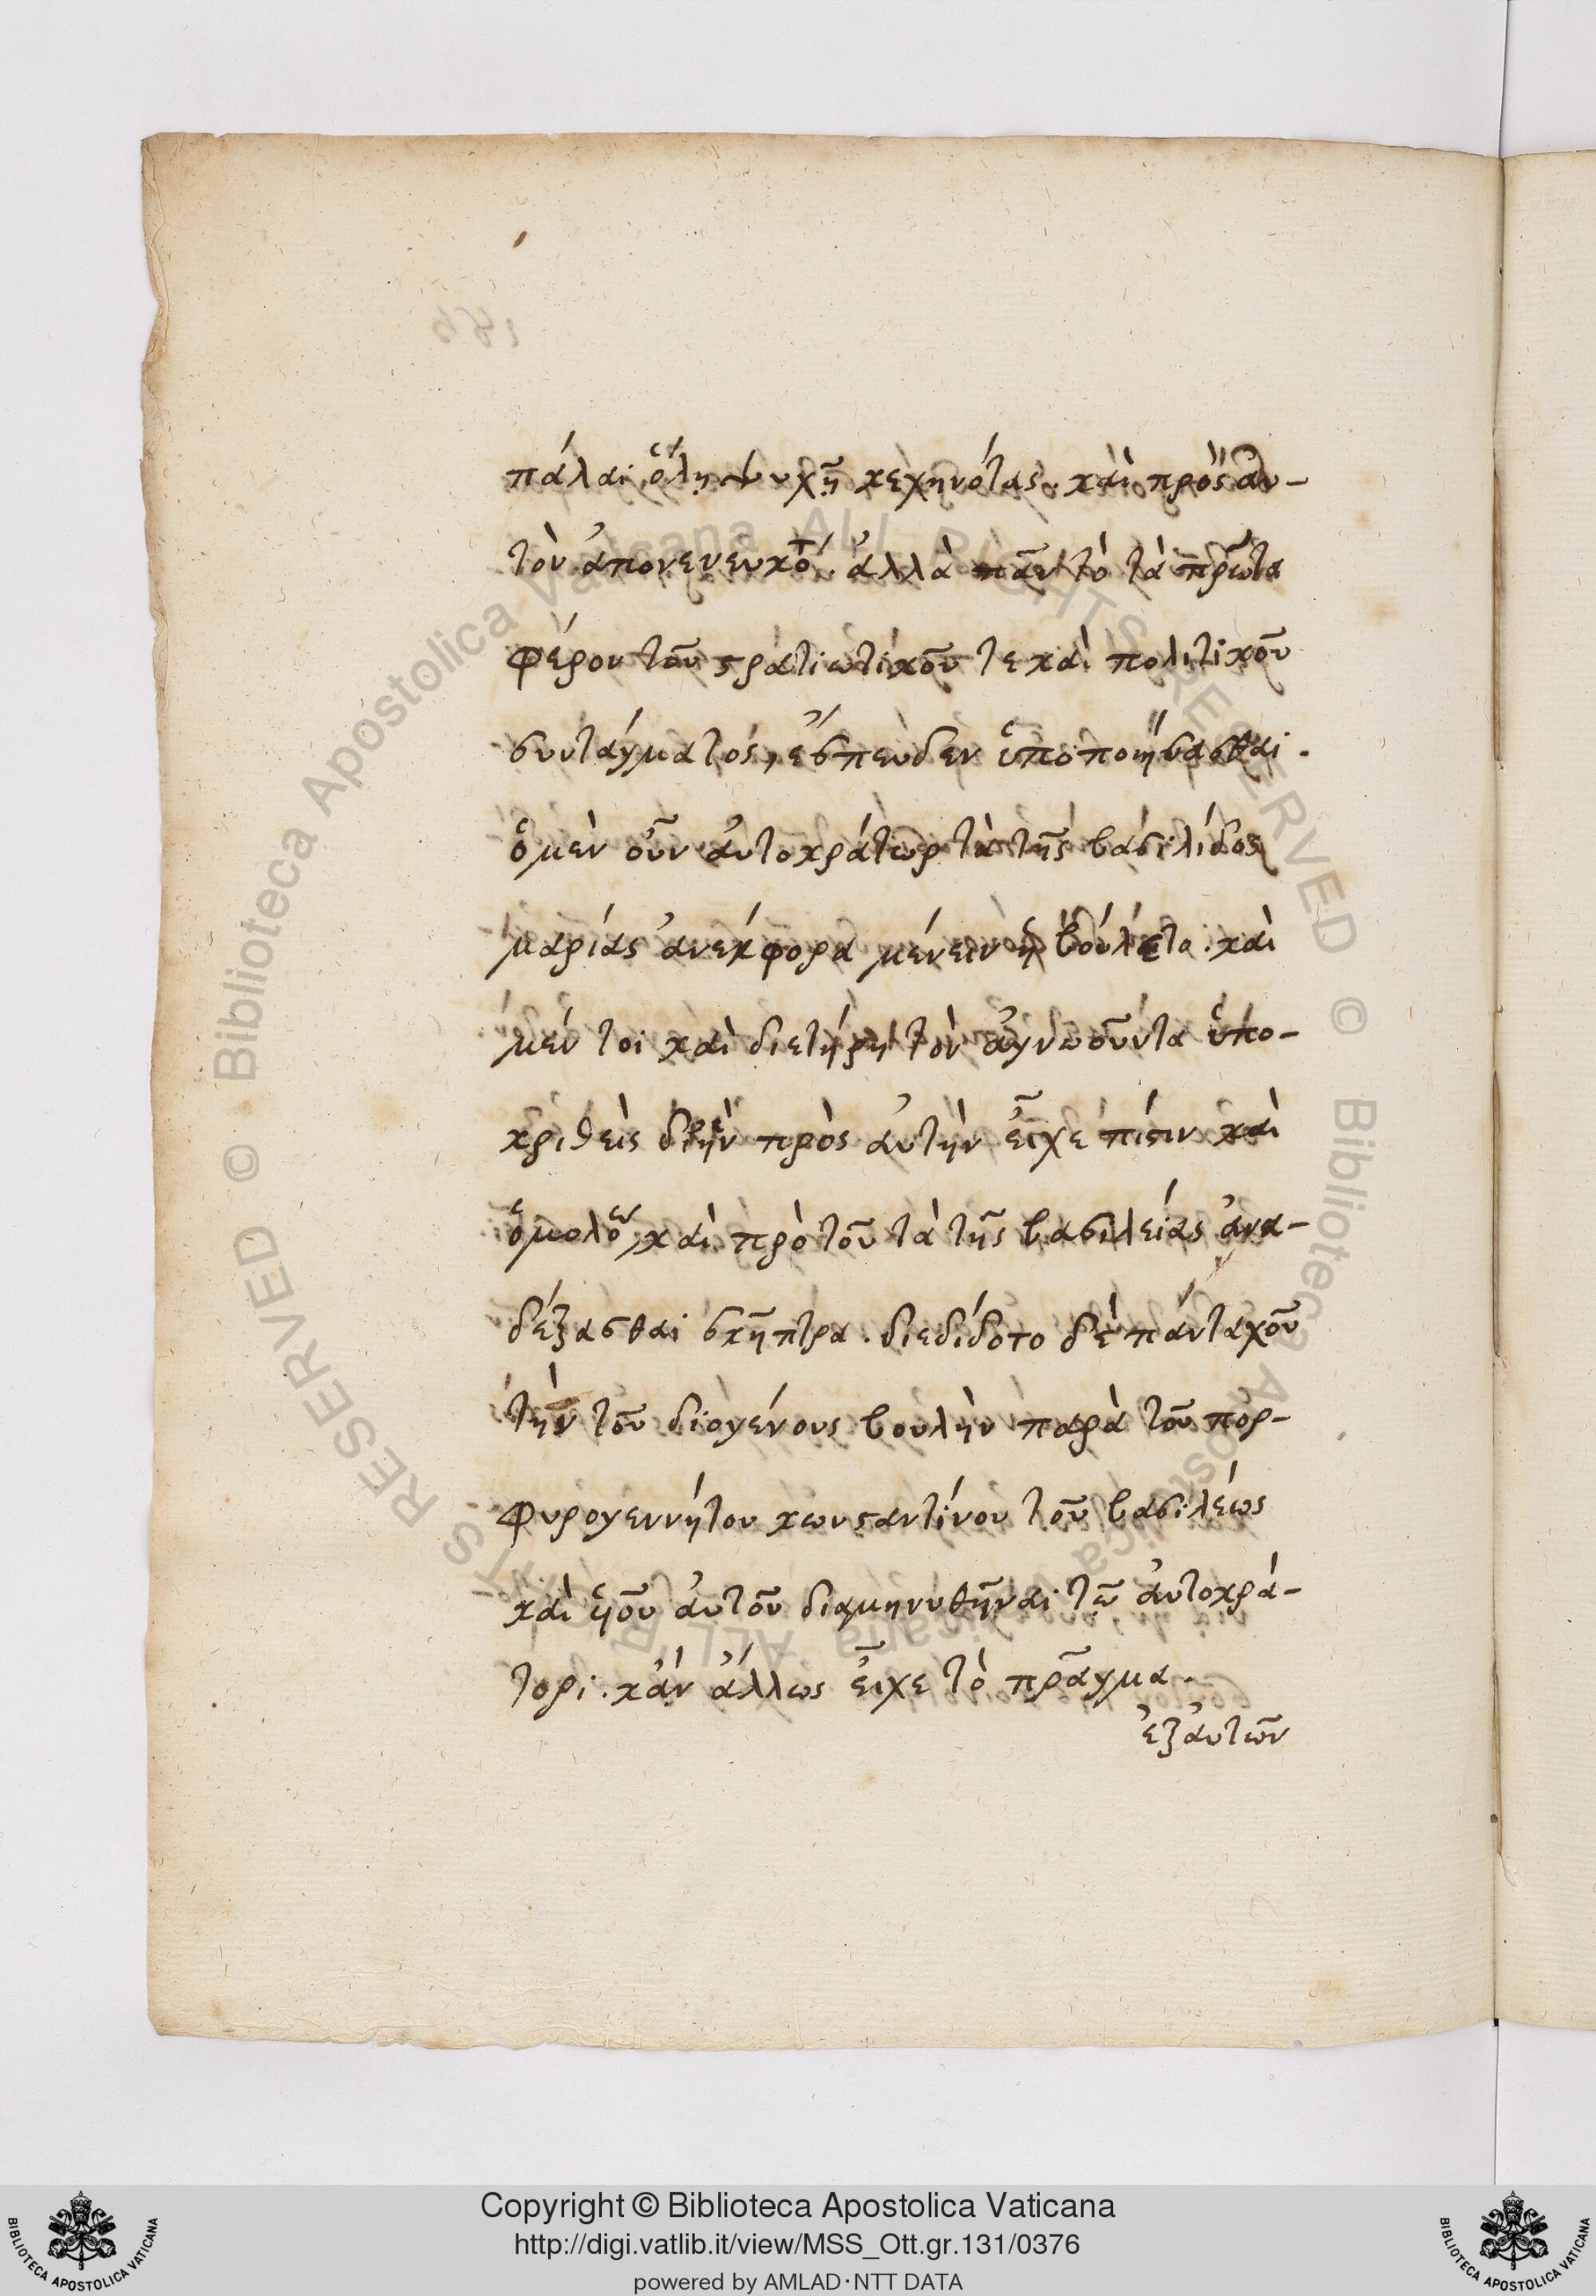 πάλαι ὅλη ψυχῆ κεχηνότας. καὶ πρὸς ἀυ-
τὸν ἀπονενευκότ. ἀλλὰ πᾶν τὸ τὰ πρῶτα
φέρον τοῦ στρατιωτικοῦ τε καὶ πολιτικοῦ
συντάγματος, ἔσπευδεν ὑποποιήσασθαι.
ὁ μὲν οὖν ἀυτοκράτωρ τὰ τῆς βασιλίδος
μαρίας ἀνέκφορα μένειν ἠβούλετο. καὶ
μέν τοι καὶ διετήρη τὸν ἀγνοοῦντα ὑπο-
κριθεὶς δι' ἣν πρὸς ἀυτὴν εἶχε πίστιν καὶ
καὶ πρὸ τοῦ τὰ τῆς βασιλείας ἀνα-
δέξασθαι σκῆπτρα. διεδίδοτο δὲ πανταχοῦ
τὴν τοῦ διογένους βουλὴν παρὰ τοῦ πορ-
φυρογεννήτου κωνσταντίνου τοῦ βασιλέως
καὶ υἱοῦ ἀυτοῦ διαμηνυθῆναι τῶ ἀυτοκρά-
τορι. κἂν ἄλλως εἶχε τὸ πρᾶγμα.
ἐξ ἀυτῶν
Copyright © Biblioteca Apostolica Vaticana
http://digi.vatlib.it/view/MSS_Ott.gr.131/0376
powered by AMLAD·NTT DATA